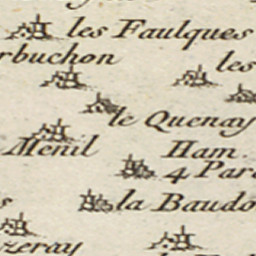 les Faulques
rbuchon
les
le Quenay
Menil
Ham.
4 Par
la Baudo
zeray